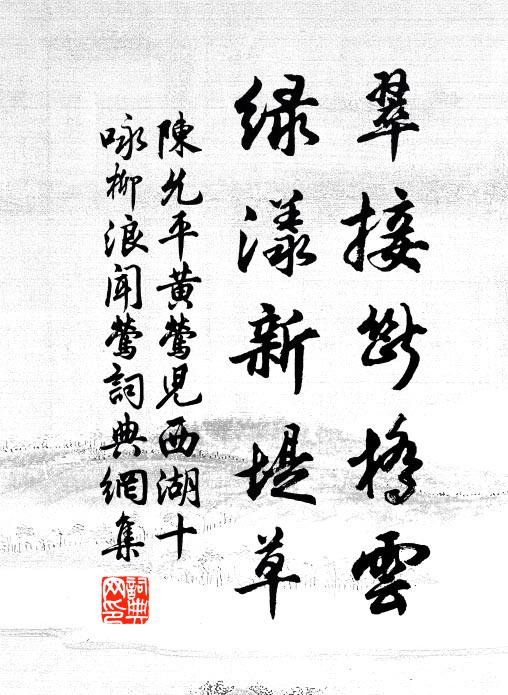 翠接斷橋雲
綠漾新堤草
陳允平黃鶯兒西湖十
咏柳浪聞鶯詞典網集
詞典
网印